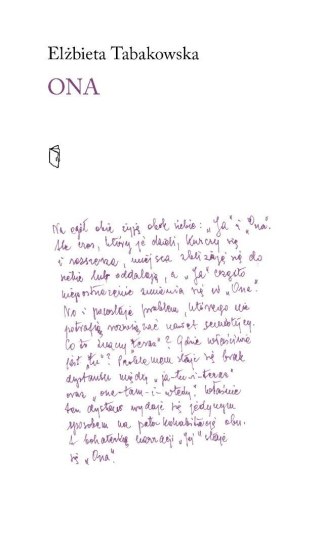 Elżbieta Tabakowska
ONA
Na ogół obie żyją obok siebie: „Ja” i „Ona”.
Ale czas, który je dzieli, kurczy się
i rozszerza, miejsca zbliżają się do
siebie lub oddalają, a „Ja” często
niepostrzeżenie zmienia się w „Ona”.
No i pozostaje problem, którego nie
potrafią rozwiązać nawet semiotycy.
Co to znaczy „teraz”? Gdzie właściwie
jest „tu”? Problemem staje się brak
dystansu między „ja-tu-i-teraz”
oraz „ona-tam-i-wtedy”. Właśnie
ten dystans wydaje się jedynym
sposobem na pełną kohabitację obu.
A bohaterką narracji „jej” staje
się „Ona”.